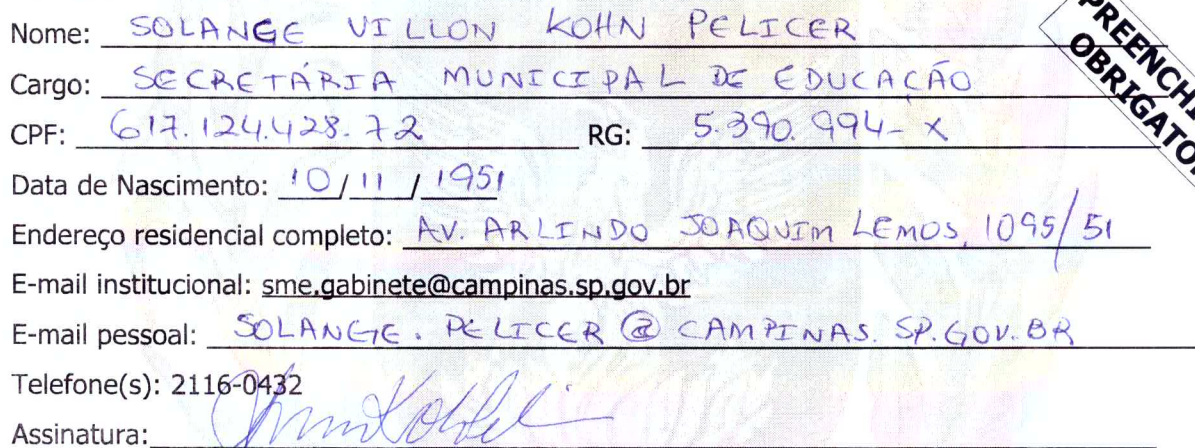 Nome: SOLANGE VILLON KOHN PELICER
Cargo: SECRETÁRIA MUNICIPAL DE EDUCAÇÃO
CPF: 617.124.428.72 RG: 5.390.994-X
Data de Nascimento: 10/11/1951
Endereço residencial completo: AV. ARLINDO JOAQUIM LEMOS, 1095/51
E-mail institucional: sme.gabinete@campinas.sp.gov.br
E-mail pessoal: SOLANGE.PELICER@CAMPINAS.SP.GOV.BR
Telefone(s): 2116-0432
Assinatura: